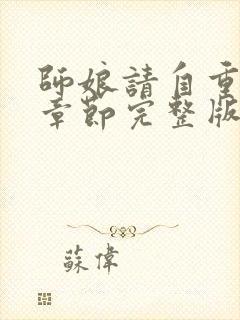 師娘請自重
章節完整版
蘇偉